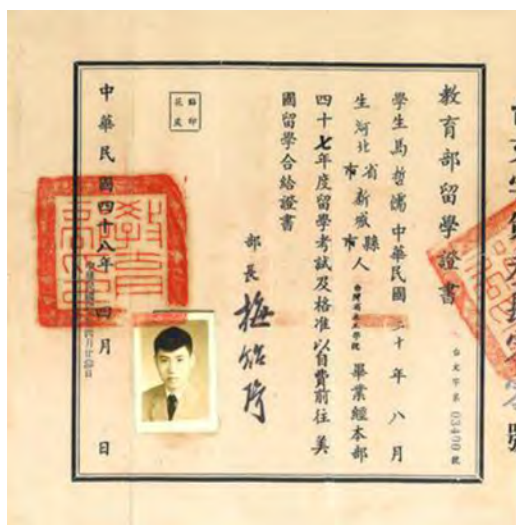 教育部留學證書
台文字第 03400 號
學生馬哲儒中華民國二十年八月
生河北省新城縣人台灣省立工學院畢業經本部
市 市
四十七年度留學考試及格准以自費前往美
國留學合給證書
部長梅貽琦
貼印
花處
中華民國四十八年四月 日
號